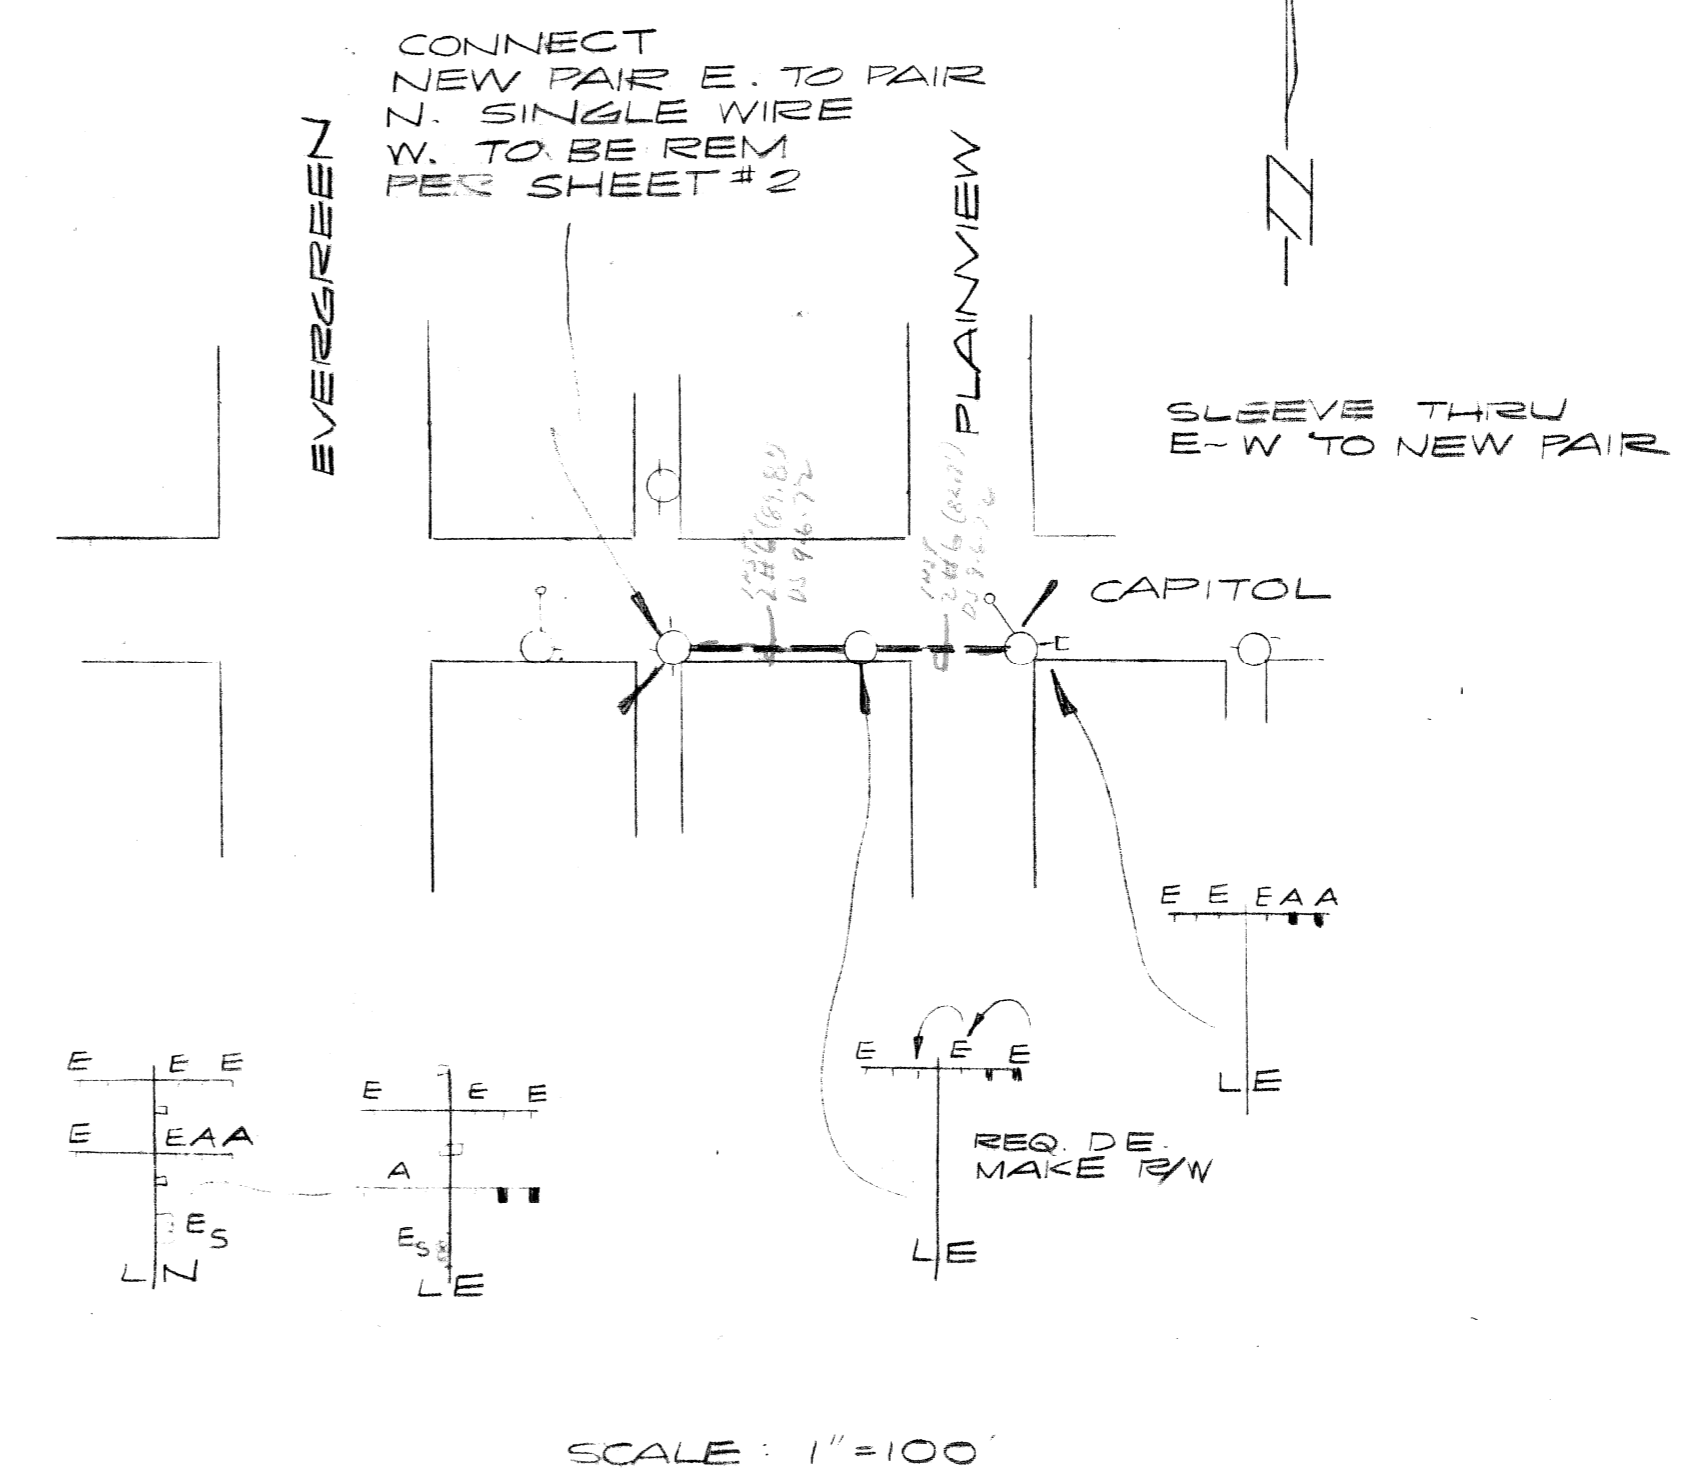 CONNECT
NEW PAIR E. TO PAIR
N. SINGLE WIRE
W. TO BE REM
PER SHEET #2
EVERGREEN
PLAINVIEW
N
SLEEVE THRU
E~W TO NEW PAIR
CAPITOL
E E E A A
L E
E E E
REQ. DE.
MAKE R/W
L E
E E E
E E A A
E S
L N
E E E
A
E S
L E
SCALE: 1"=100'